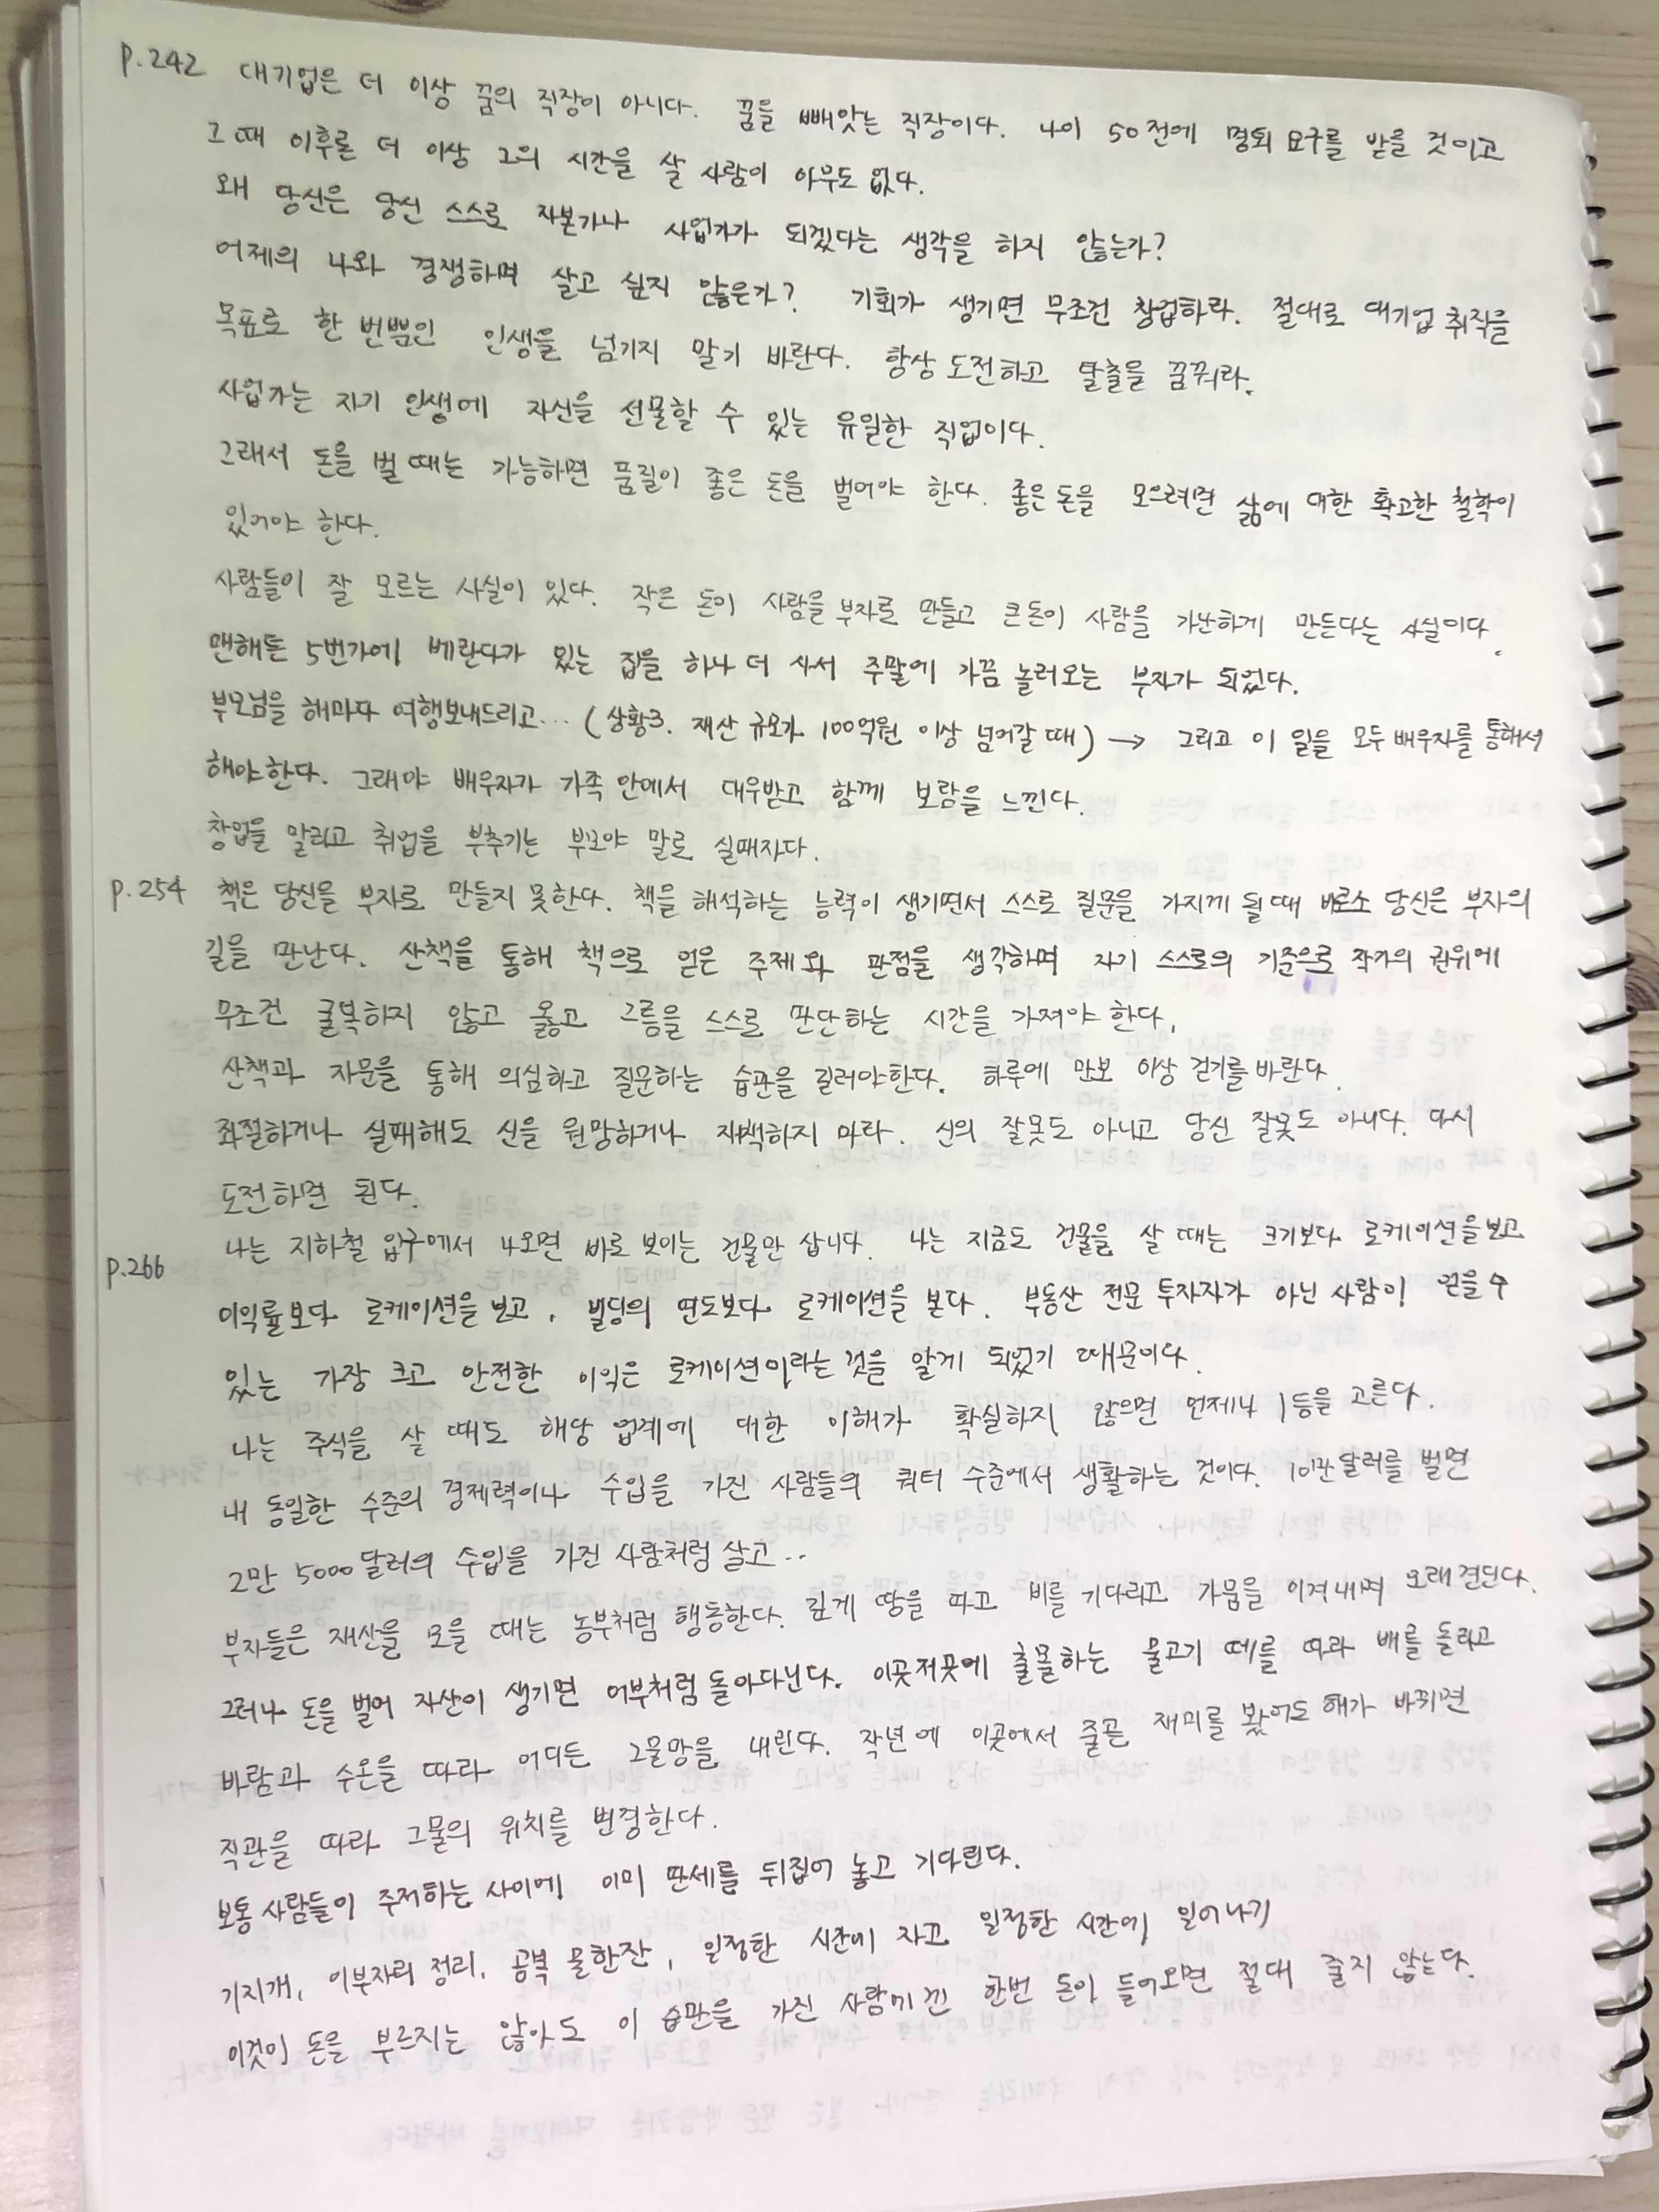 p.242 대기업은 더 이상 꿈의 직장이 아니다. 꿈을 빼앗는 직장이다. 나이 50전에 명퇴 요구를 받을 것이고
그 때 이후론 더 이상 그의 시간을 살 사람이 아무도 없다.
왜 당신은 당신 스스로 자본가나 사업가가 되겠다는 생각을 하지 않는가?
어제의 나와 경쟁하며 살고 싶지 않은가? 기회가 생기면 무조건 창업하라. 절대로 대기업 취직을
목표로 한 번뿐인 인생을 넘기지 말기 바란다. 항상 도전하고 탈출을 꿈꿔라.
사업가는 자기 인생에 자신을 선물할 수 있는 유일한 직업이다.
그래서 돈을 벌 때는 가능하면 품질이 좋은 돈을 벌어야 한다. 좋은 돈을 모으려면 삶에 대한 확고한 철학이
있어야 한다.
사람들이 잘 모르는 사실이 있다. 작은 돈이 사람을 부자로 만들고 큰 돈이 사람을 가난하게 만든다는 사실이다.
맨해튼 5번가에 베란다가 있는 집을 하나 더 사서 주말에 가끔 놀러오는 부자가 되었다.
부모님을 해마다 여행보내드리고... (상황3. 재산 규모가 100억원 이상 넘어갈 때) → 그리고 이 일을 모두 배우자를 통해서
해야한다. 그래야 배우자가 가족 안에서 대우받고 함께 보람을 느낀다.
창업을 말리고 취업을 부추기는 부모야 말로 실패자다.
p.254 책은 당신을 부자로 만들지 못한다. 책을 해석하는 능력이 생기면서 스스로 질문을 가지게 될 때 비로소 당신은 부자의
길을 만난다. 산책을 통해 책으로 얻은 주제와 관점을 생각하며 자기 스스로의 기준으로 작가의 권위에
무조건 굴복하지 않고 옳고 그름을 스스로 판단하는 시간을 가져야 한다.
산책과 자문을 통해 의심하고 질문하는 습관을 길러야한다. 하루에 만보 이상 걷기를 바란다.
좌절하거나 실패해도 신을 원망하거나 자백하지 마라. 신의 잘못도 아니고 당신 잘못도 아니다. 다시
도전하면 된다.
p.266 나는 지하철 입구에서 나오면 바로 보이는 건물만 삽니다. 나는 지금도 건물을 살 때는 크기보다 로케이션을 보고
이익률보다 로케이션을 보고, 빌딩의 연도보다 로케이션을 본다. 부동산 전문 투자자가 아닌 사람이 얻을 수
있는 가장 크고 안전한 이익은 로케이션이라는 것을 알게 되었기 때문이다.
나는 주식을 살 때도 해당 업계에 대한 이해가 확실하지 않으면 언제나 1등을 고른다.
내 동일한 수준의 경제력이나 수입을 가진 사람들의 쿼터 수준에서 생활하는 것이다. 10만 달러를 벌면
2만 5000 달러의 수입을 가진 사람처럼 살고..
부자들은 재산을 모을 때는 농부처럼 행동한다. 깊게 땅을 파고 비를 기다리고 가뭄을 이겨내며 오래 견딘다.
그러나 돈을 벌어 자산이 생기면 어부처럼 돌아다닌다. 이곳저곳에 출몰하는 물고기 떼를 따라 배를 돌리고
바람과 수온을 따라 어디든 그물망을 내린다. 작년에 이곳에서 줄곧 재미를 봤어도 해가 바뀌면
직관을 따라 그물의 위치를 변경한다.
보통 사람들이 주저하는 사이에 이미 판세를 뒤집어 놓고 기다린다.
기지개, 이부자리 정리, 공복 물한잔, 일정한 시간에 자고 일정한 시간에 일어나기
이것이 돈을 부르지는 않아도 이 습관을 가진 사람에겐 한번 돈이 들어오면 절대 줄지 않는다.